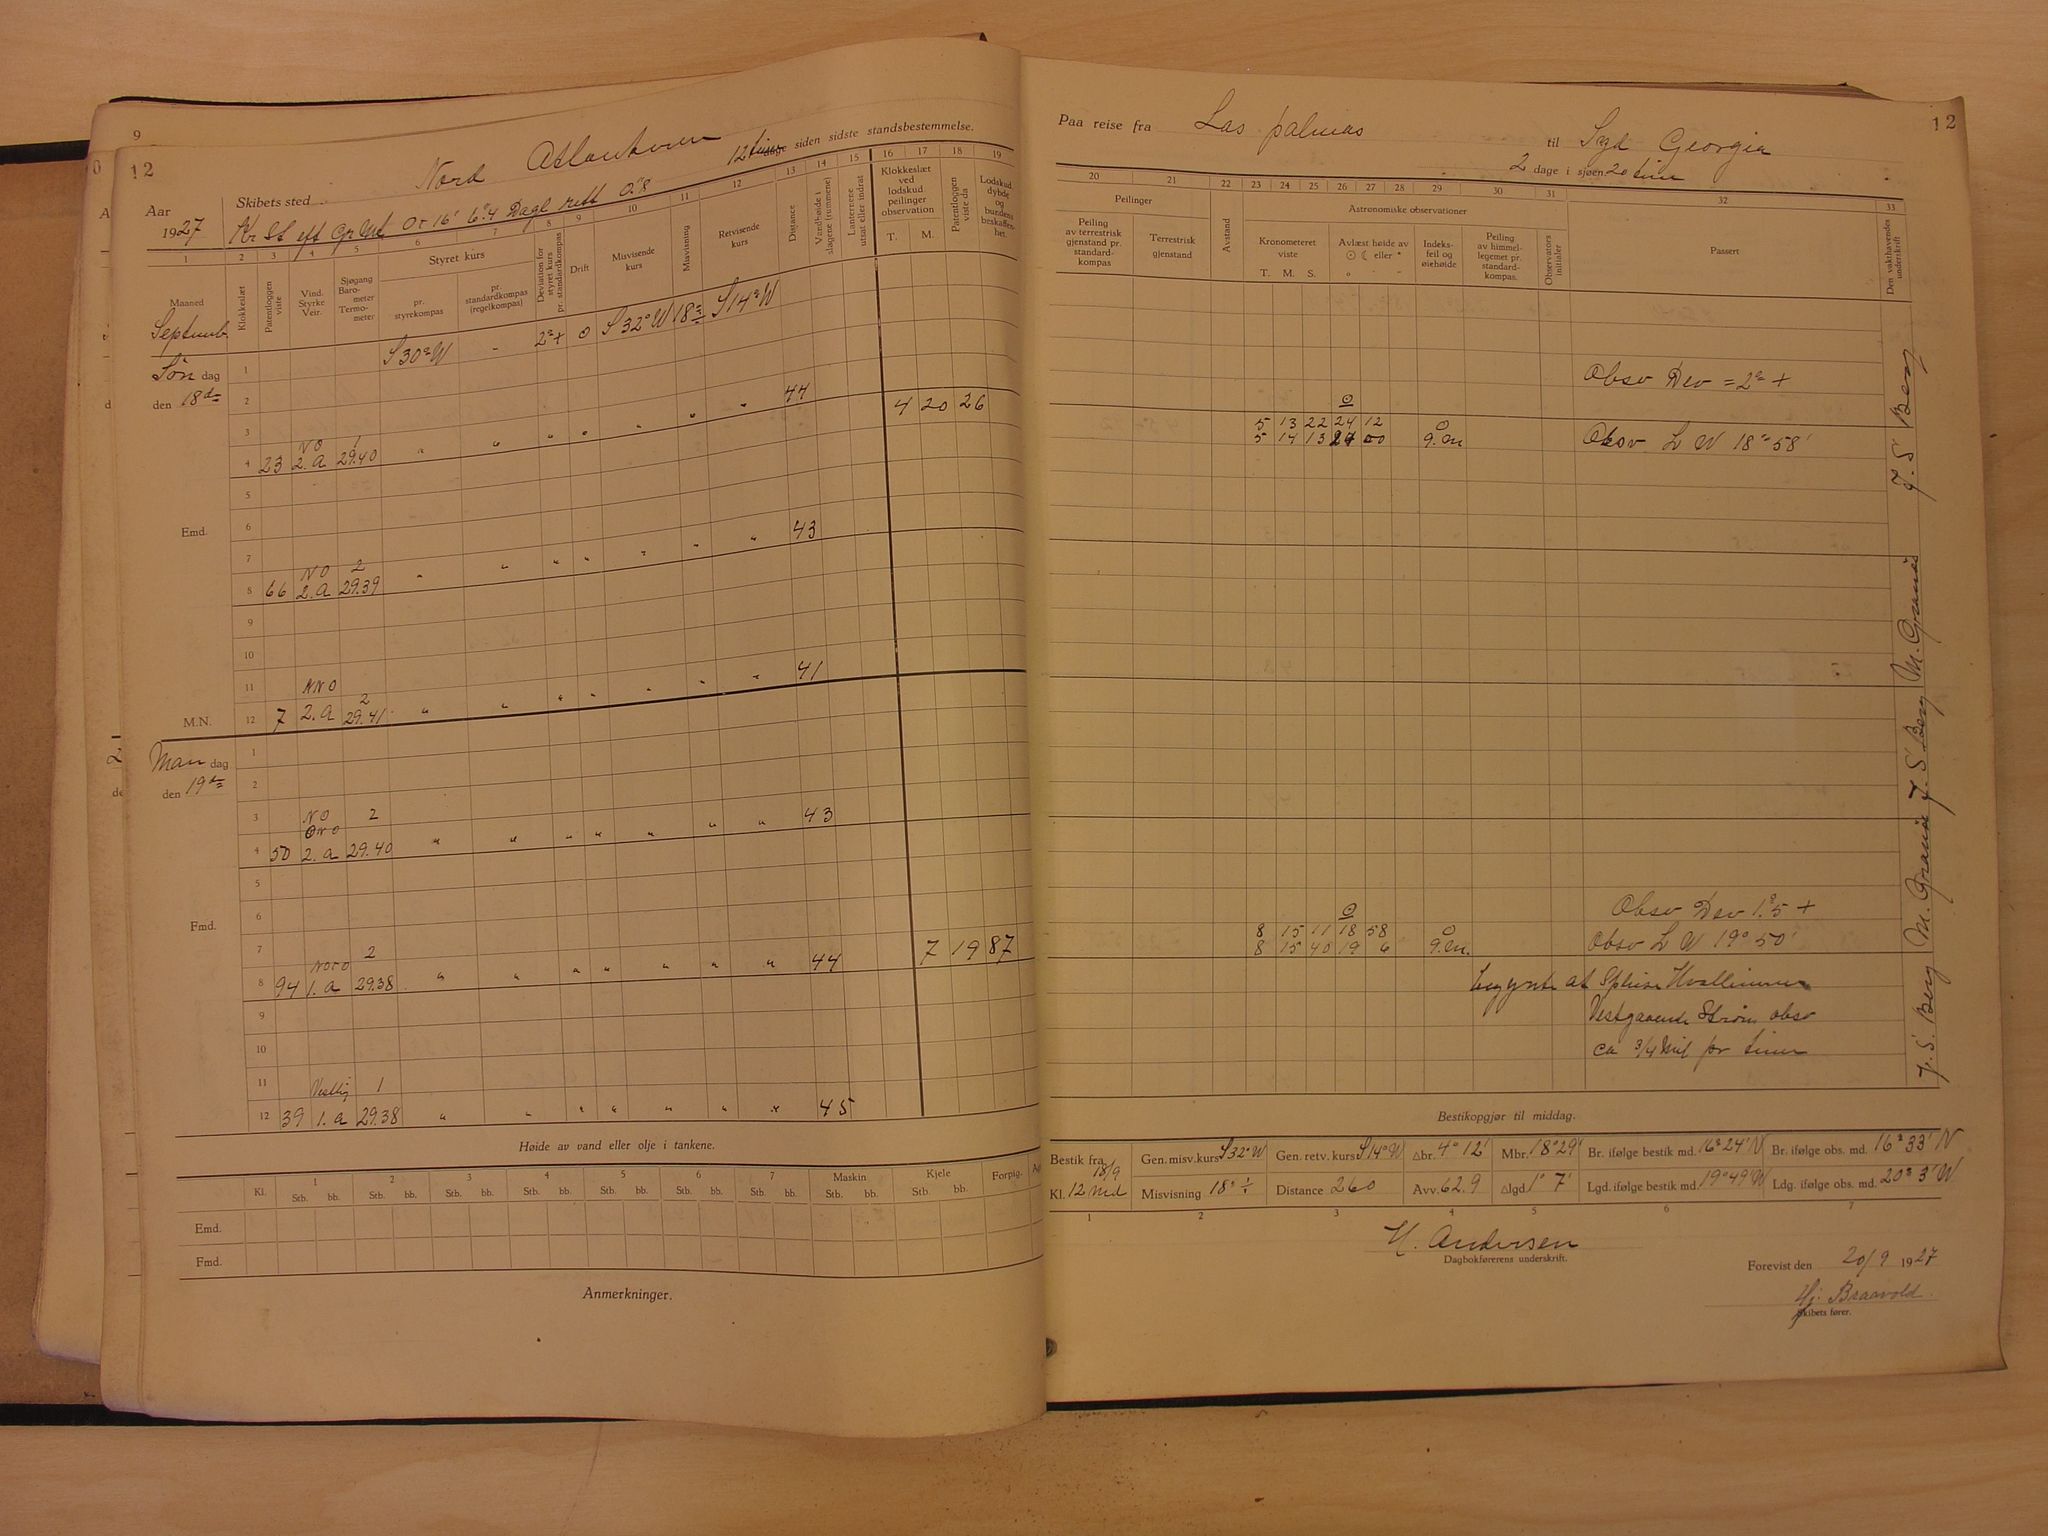 9
12
Skibets sted Nord Atlanteren 12 timer dage siden sidste standsbestemmelse.
Aar
1927 Kr St eft Gr Mt 0 t 16' 6.s4 Dagl rett 0.s8
1 2 3 4 5 6 7 8 9 10 11 12 13 14 15 16 17 18 19
Maaned
Klokkeslæt
Patentloggen viste
Vind. Styrke Veir.
Sjøgang Barometer Termometer
Styret kurs
pr. styrekompas
pr. standardkompas (regelkompas)
Deviation for styret kurs pr. standardkompas
Drift
Misvisende kurs
Misvisning
Retvisende kurs
Distance
Vandhøide i slagene (rummene)
Lanternene utsat eller indrat
Klokkeslæt ved lodskud peilinger observation
T. M.
Patentloggen viste da
Lodskud dybde og bundens beskaffenhet.
Septemb.
S30°W - 2°+ 0 S32°W 18° S14°W
Søn dag
den 18de
1
2
3 NO 1 44
4 23 2.a 29.40 " " " " " " " 4 20 26
5
6
Emd.
7 NO 2 43
8 66 2.a 29.39 " " " " " " "
9
10
11 NNO 2 41
M.N. 12 7 2.a 29.41 " " " " " " "
Man dag
den 19de
1
2
3 NO 2
ONO 43
4 50 2.a 29.40 " " " " " " "
5
6
Fmd.
7 2
8 94 1.a 29.38 " " " " " " " 44 7 19 87
9
10
11 Vestlig 1
12 39 1.a 29.38 " " " " " " " 45
Høide av vand eller olje i tankene.
Kl. 1 2 3 4 5 6 7 Maskin Kjele Forpig.
Stb. bb. Stb. bb. Stb. bb. Stb. bb. Stb. bb. Stb. bb. Stb. bb. Stb. bb. Stb. bb.
Emd.
Fmd.
Anmerkninger.
12
Paa reise fra Las palmas til Syd Georgia
2 dage i sjøen 20 timer
20 21 22 23 24 25 26 27 28 29 30 31 32 33
Peilinger
Peiling av terrestrisk gjenstand pr. standardkompas
Terrestrisk gjenstand
Avstand
Astronomiske observationer
Kronometeret viste
T. M. S.
Avlæst høide av ☉ ☾ eller *
° ' "
Indeksfeil og øiehøide
Peiling av himmellegemet pr. standardkompas.
Observators initialer
Passert
Den vakthavendes underskrift
Obsv Dev = 2° +
☉
5 13 22 24 12 0
5 14 13 24 00 9.m Obsv L W 18° 58'
J. S. Berg
M. Granis
J. S. Berg
M. Granis
J. S. Berg
Obsv Dev 1.°5 +
☉
8 15 11 18 58 0
8 15 40 19 6 9.m. Obsv L W 19° 50'
begynte at Spleise Hvallinerne
Vestgaaende Strøm obsv
ca 3/4 Mil pr timer
Bestikopgjør til middag.
Bestik fra 18/9 Kl. 12 Md
Gen. misv. kurs S32°W Gen. retv. kurs S14°W △br. 4° 12' Mbr. 18°29' Br. ifølge bestik md. 16°24'N Br. ifølge obs. md. 16° 33' N
Misvisning 18° Distance 260 Avv. 62.9 △lgd 1° 7' Lgd. ifølge bestik md. 19°49'W Ldg. ifølge obs. md. 20° 3' W
1 2 3 4 5 6 7
H. Andersen
Dagbokførerens underskrift.
Forevist den 20/9 1927
Hj. Braavold.
Skibets fører.